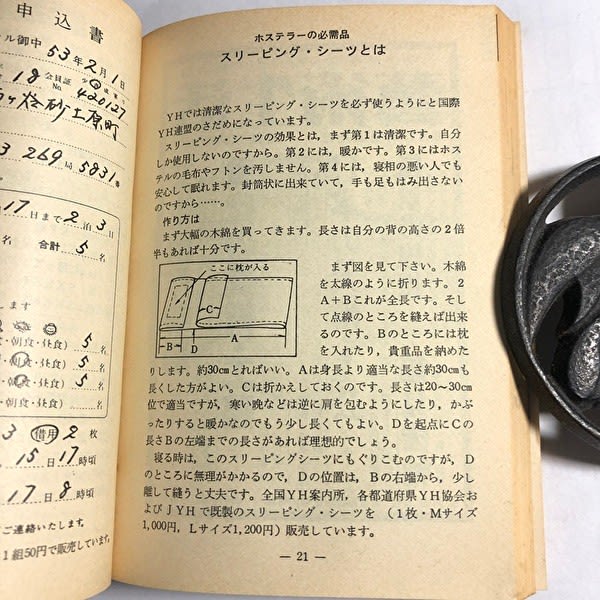 申込書
ル御中 53年2月1日
18 会員証 No. 420127
砂土原町
3 269局5831番
17日まで2泊3日
名 合計 5名
します
・朝食・昼食) 5名
・朝食・昼食) 5名
・朝食・昼食) 5名
・朝食・昼食)......名
3 借用 2枚
15日17時頃
17日8時頃
ご連絡いたします。
1組50円で販売しています。
ホステラーの必需品
スリーピング・シーツとは
YHでは清潔なスリーピング・シーツを必ず使うようにと国際
YH連盟のさだめになっています。
スリーピング・シーツの効果とは,まず第1は清潔です。自分
しか使用しないのですから。第2には,暖かです。第3にはホス
テルの毛布やフトンを汚しません。第4には,寝相の悪い人でも
安心して眠れます。封筒状に出来ていて,手も足もはみ出さない
のですから……。
作り方は
まず大幅の木綿を買ってきます。長さは自分の背の高さの2倍
半もあれば十分です。
ここに枕が入る
C
B
D
A
まず図を見て下さい。木綿
を太線のように折ります。2
A+Bこれが全長です。そし
て点線のところを縫えば出来
るのです。Bのところには枕
を入れたり,貴重品を納めた
りします。約30cmとればいい。Aは身長より適当な長さ約30cmも
長くした方がよい。Cは折かえしておくのです。長さは20~30cm
位で適当ですが,寒い晩などは逆に肩を包むようにしたり,かぶ
ったりすると暖かなのでもう少し長くてもよい。Dを起点にCの
長さBの左端までの長さがあれば理想的でしょう。
寝る時は,このスリーピングシーツにもぐりこむのですが,D
のところに無理がかかるので,Dの位置は,Bの右端から,少し
離して縫うと丈夫です。全国YH案内所,各都道府県YH協会お
よびJYHで既製のスリーピング・シーツを(1枚・Mサイズ
1,000円,Lサイズ1,200円)販売しています。
— 21 —